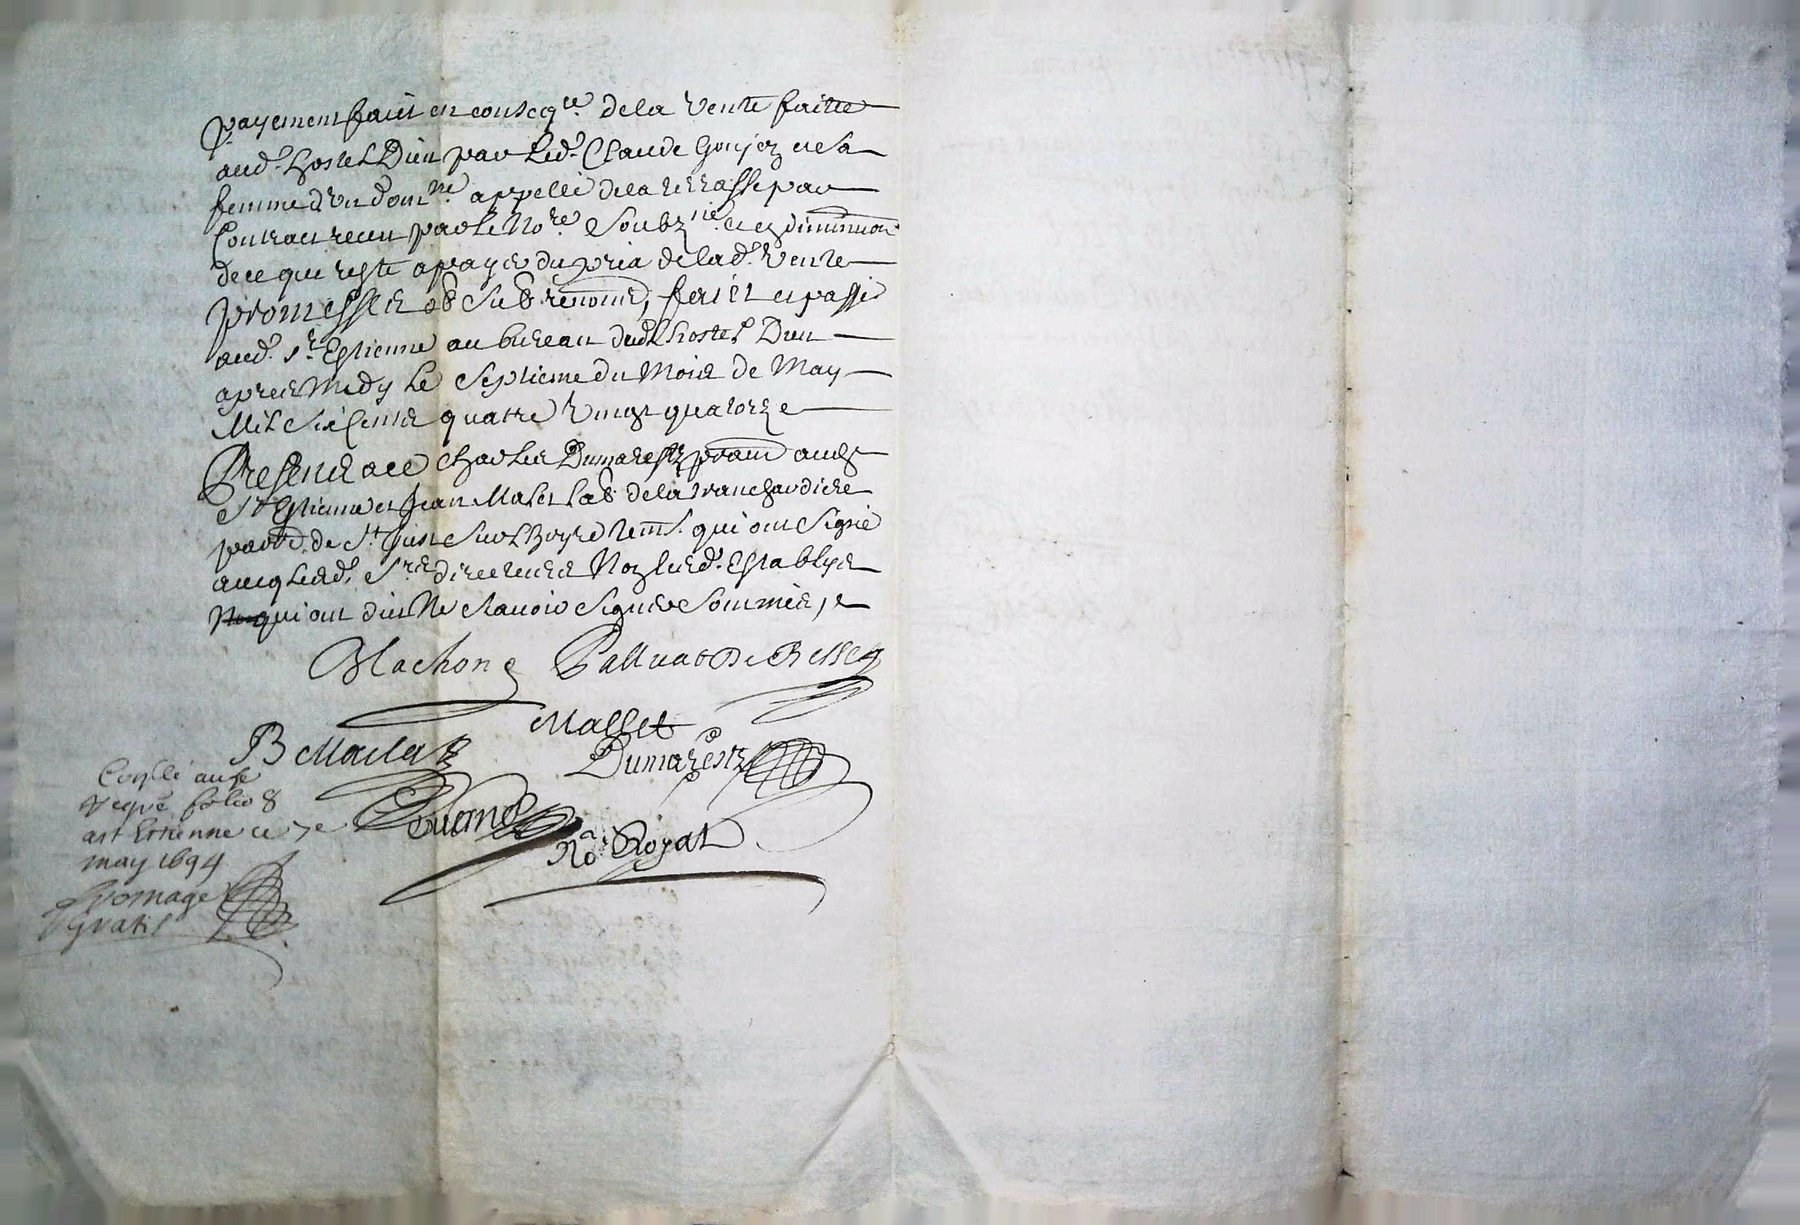 payement faict en conseq.ce de la vente faitte
aud. hostel Dieu par led. Claude Goujoz et sa
femme d'un dom.ne appellé de la terrasse par
Contract receu par le No.re Soubz.né et en diminution
de ce qui reste a payer du prix de lad. vente
promesses ob sub renoncé, faict et passé
aud. St Estienne au bureau dud. hostel Dieu
apres Midy le Septieme du Mois de May
Mil Six Centz quatre vingt quatorze
Presentz a ce Charles Dumarestz prattn aud.
St Estienne et Jean Malet lab. de la
parr. de St Just Sur Loyre tesm. qui ont Signé
avecq lesd. Srs directeurs Non lesd. Establys
qui ont dict Ne Scavoir Signer Sommés, et
Blachon Palluat De Besset
Mallet
B Mailar Dumarestz
Conllé au
regre folio 8
a st Estienne ce 7e
may 1694
No. Royal
fromage
Gratis